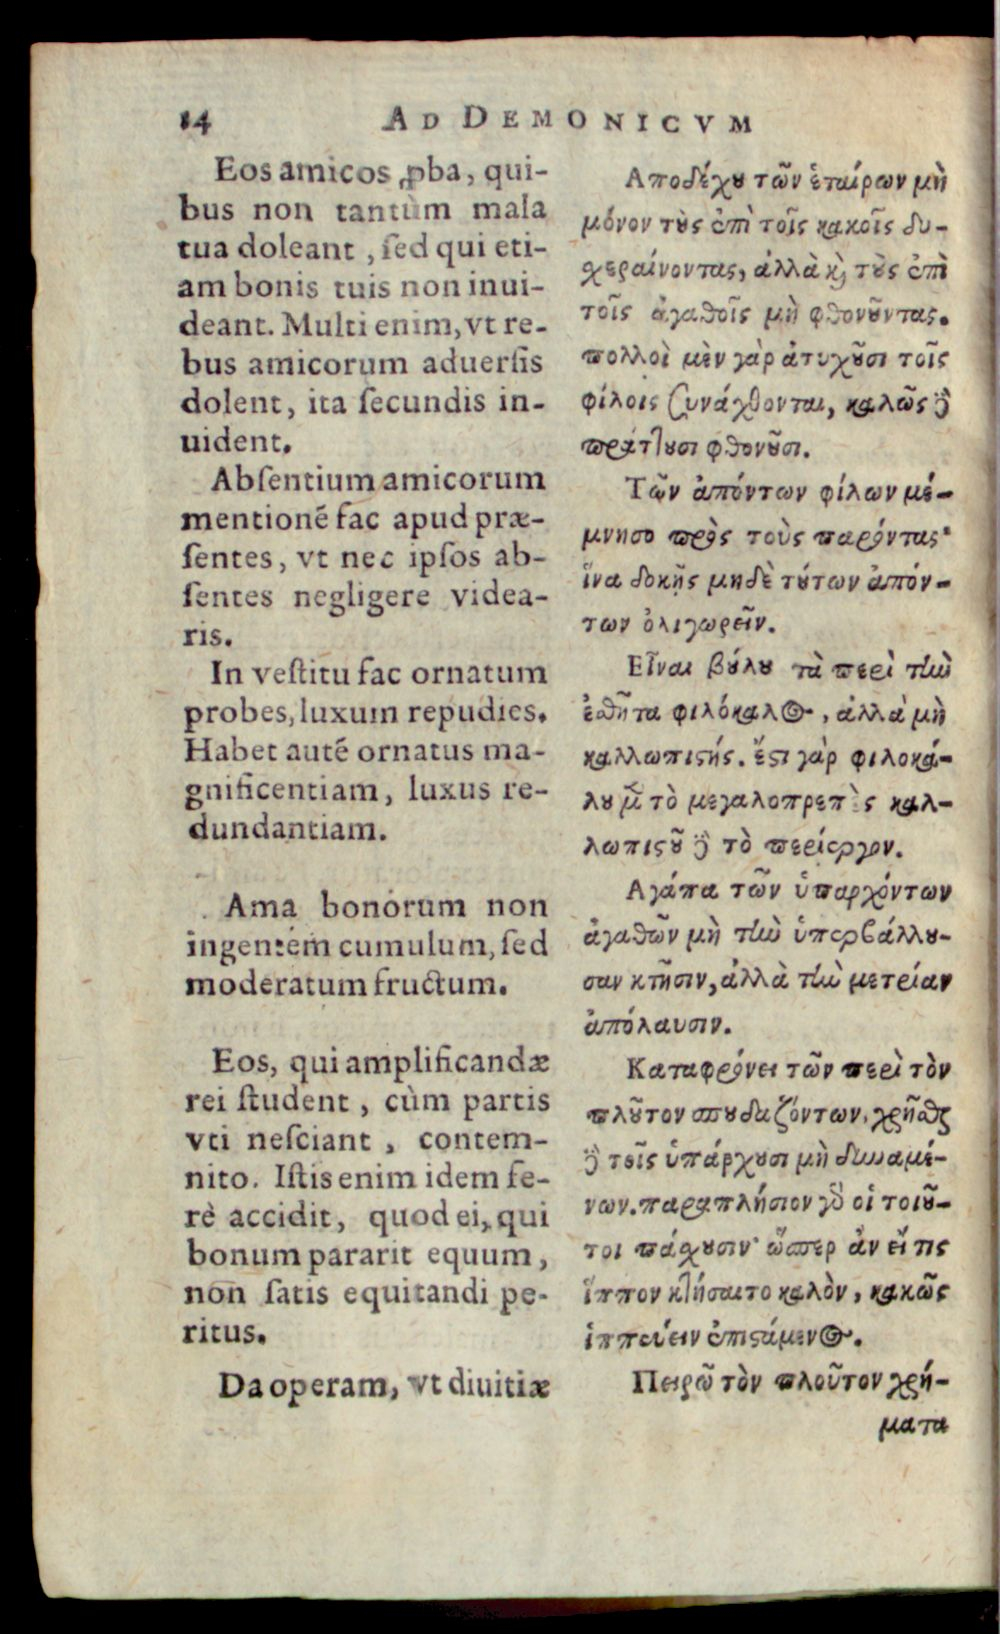 14 AD DEMONICVM
Eos amicos ꝓba, qui-
bus non tantùm mala
tua doleant, ſed qui eti-
am bonis tuis non inui-
deant. Multi enim, vt re-
bus amicorum aduerſis
dolent, ita ſecundis in-
uident.
Abſentium amicorum
mentionē fac apud præ-
ſentes, vt nec ipſos ab-
ſentes negligere videa-
ris.
In veſtitu fac ornatum
probes, luxum repudies.
Habet autē ornatus ma-
gnificentiam, luxus re-
dundantiam.
Ama bonorum non
ingentem cumulum, ſed
moderatum fructum.
Eos, qui amplificandæ
rei ſtudent, cùm partis
vti neſciant, contem-
nito. Iſtis enim idem fe-
rè accidit, quod ei, qui
bonum pararit equum,
non ſatis equitandi pe-
ritus.
Da operam, vt diuitiæ
Αποδέχȣ τῶν ἑταίρων μὴ
μόνον τȣ̀ς ἐπὶ τοῖς κακοῖς δυ-
χεραίνοντας, ἀλλὰ ϗ τȣ̀ς ἐπὶ
τοῖς ἀγαθοῖς μὴ φθονȣ͂ντας.
πολλοὶ μὲν γὰρ ἀτυχȣ͂σι τοῖς
φίλοις ζυνάχθονται, καλῶς δὲ
πράττȣσι φθονȣ͂σι.
Τῶν ἀπόντων φίλων μέ-
μνησο πρὸς τοὺς παρόντας·
ἵνα δοκῇς μηδὲ τȣ́των ἀπόν-
των ὀλιγωρεῖν.
Εἶναι βȣ́λȣ τὰ περὶ τὴν
ἐθῆτα φιλόκαλος, ἀλλὰ μὴ
καλλωπιϛής. ἔϛι γὰρ φιλοκά-
λȣ μὲν τὸ μεγαλοπρεπὲς καλ-
λωπιϛȣ͂ δὲ τὸ περίεργον.
Αγάπα τῶν ὑπαρχόντων
ἀγαθῶν μὴ τὴν ὑπερβάλλȣ-
σαν κτῆσιν, ἀλλὰ τὴν μετρίαν
ἀπόλαυσιν.
Καταφρόνει τῶν περὶ τὸν
πλȣ͂τον σπȣδαζόντων, χρῆσθαι
δὲ τοῖς ὑπάρχȣσι μὴ δυναμέ-
νων. παραπλήσιον γὰρ οἱ τοιȣ͂-
τοι πάχȣσιν· ὥσπερ ἀν εἴ τις
ἵππον κτήσαιτο καλὸν, κακῶς
ἱππεύειν ἐπιϛάμενος.
Πειρῶ τὸν πλοῦτον χρή-
ματα